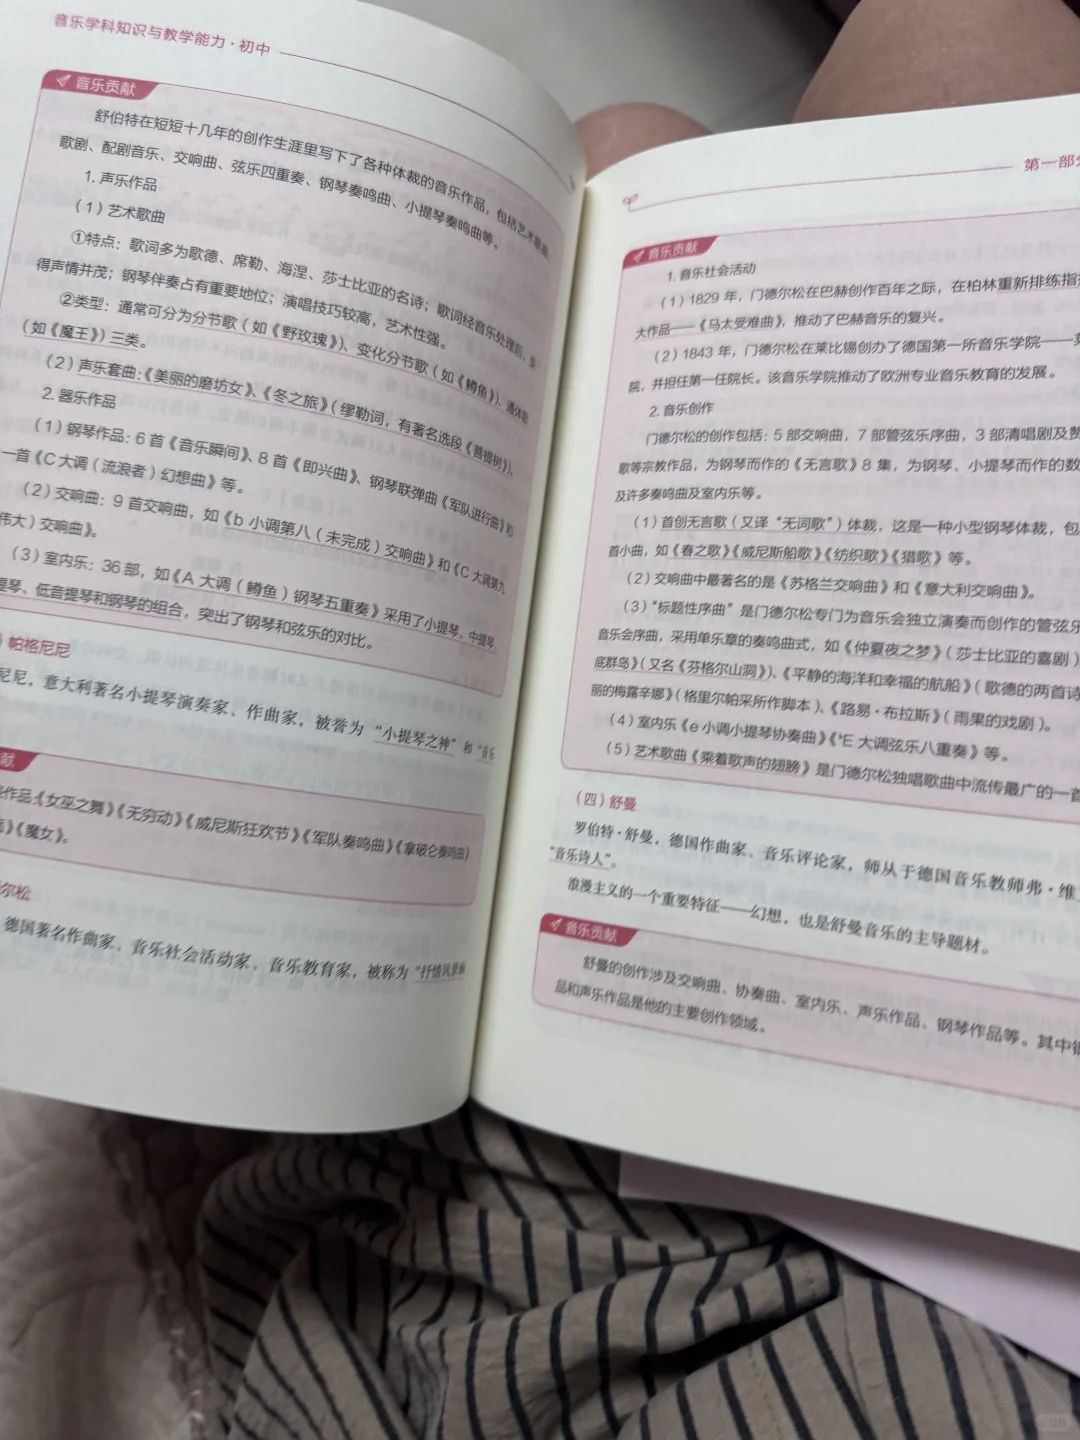 音乐学科知识与教学能力·初中
音乐贡献
舒伯特在短短十几年的创作生涯里写下了各种体裁的音乐作品，包括艺术歌曲、
歌剧、配剧音乐、交响曲、弦乐四重奏、钢琴奏鸣曲、小提琴奏鸣曲等。
1. 声乐作品
（1）艺术歌曲
①特点：歌词多为歌德、席勒、海涅、莎士比亚的名诗；歌词经音乐处理后，
得声情并茂；钢琴伴奏占有重要地位；演唱技巧较高，艺术性强。
②类型：通常可分为分节歌（如《野玫瑰》）、变化分节歌（如《鳟鱼》）、通体歌
（如《魔王》）三类。
（2）声乐套曲：《美丽的磨坊女》、《冬之旅》（缪勒词，有著名选段《菩提树》）、
2. 器乐作品
（1）钢琴作品：6 首《音乐瞬间》、8 首《即兴曲》、钢琴联弹曲《军队进行曲》和
一首《C大调（流浪者）幻想曲》等。
（2）交响曲：9 首交响曲，如《b 小调第八（未完成）交响曲》和《C 大调第九
伟大）交响曲》。
（3）室内乐：36 部，如《A 大调（鳟鱼）钢琴五重奏》采用了小提琴、中提琴、
提琴、低音提琴和钢琴的组合，突出了钢琴和弦乐的对比。
）帕格尼尼
尼尼，意大利著名小提琴演奏家、作曲家，被誉为“小提琴之神”和“音乐
献
作品：《女巫之舞》《无穷动》《威尼斯狂欢节》《军队奏鸣曲》《拿破仑奏鸣曲》
》《魔女》。
尔松
德国著名作曲家、音乐社会活动家、音乐教育家，被称为“抒情风景画
第一部分
音乐贡献
1. 音乐社会活动
（1）1829 年，门德尔松在巴赫创作百年之际，在柏林重新排练指挥
大作品——《马太受难曲》，推动了巴赫音乐的复兴。
（2）1843 年，门德尔松在莱比锡创办了德国第一所音乐学院——
院，并担任第一任院长。该音乐学院推动了欧洲专业音乐教育的发展。
2. 音乐创作
门德尔松的创作包括：5 部交响曲，7 部管弦乐序曲，3 部清唱剧及赞
歌等宗教作品，为钢琴而作的《无言歌》8 集，为钢琴、小提琴而作的数
及许多奏鸣曲及室内乐等。
（1）首创无言歌（又译“无词歌”）体裁，这是一种小型钢琴体裁，包
首小曲，如《春之歌》《威尼斯船歌》《纺织歌》《猎歌》等。
（2）交响曲中最著名的是《苏格兰交响曲》和《意大利交响曲》。
（3）“标题性序曲”是门德尔松专门为音乐会独立演奏而创作的管弦乐
音乐会序曲，采用单乐章的奏鸣曲式，如《仲夏夜之梦》（莎士比亚的喜剧）
底群岛》（又名《芬格尔山洞》）、《平静的海洋和幸福的航船》（歌德的两首诗
丽的梅露辛娜》（格里尔帕采所作脚本）、《路易·布拉斯》（雨果的戏剧）。
（4）室内乐《e 小调小提琴协奏曲》《ᵇE 大调弦乐八重奏》等。
（5）艺术歌曲《乘着歌声的翅膀》是门德尔松独唱歌曲中流传最广的一首
（四）舒曼
罗伯特·舒曼，德国作曲家、音乐评论家，师从于德国音乐教师弗·维
“音乐诗人”。
浪漫主义的一个重要特征——幻想，也是舒曼音乐的主导题材。
音乐贡献
舒曼的创作涉及交响曲、协奏曲、室内乐、声乐作品、钢琴作品等。其中钢
品和声乐作品是他的主要创作领域。